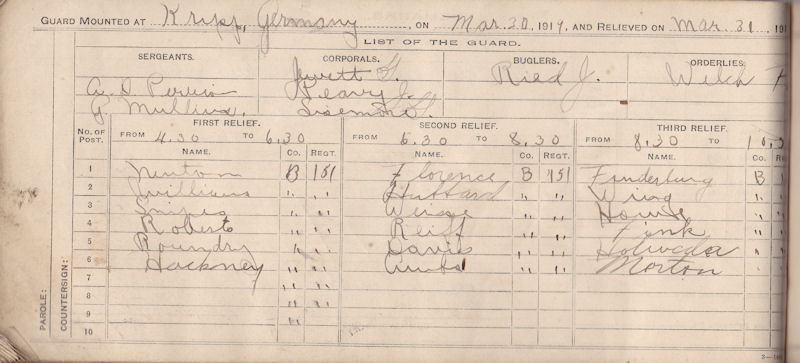 GUARD MOUNTED AT Kripp, Germany, ON Mar. 30, 1919, AND RELIEVED ON Mar. 31, 191
LIST OF THE GUARD.
SERGEANTS. CORPORALS. BUGLERS. ORDERLIES.
Jewett G. Ried J. Welch F
A. D. Peavy J.
G. Mullins,
FIRST RELIEF. SECOND RELIEF. THIRD RELIEF.
No. of Post. FROM 4.30 TO 6.30 FROM 6.30 TO 8.30 FROM 8.30 10.3
NAME. Co. REGT. NAME. Co. REGT. NAME. Co.
1 Newton B 151 Florence B 151 Funderburg B 1
2 Williams " " Hubbard " " Wing " "
3 Snipes " " " " House " "
4 Roberts " " Reiff " " Fink " "
5 Roundry " " Davis " " " "
6 Hackney " " " " Morton " "
7 " "
8 " "
9 "
10
PAROLE:
COUNTERSIGN: